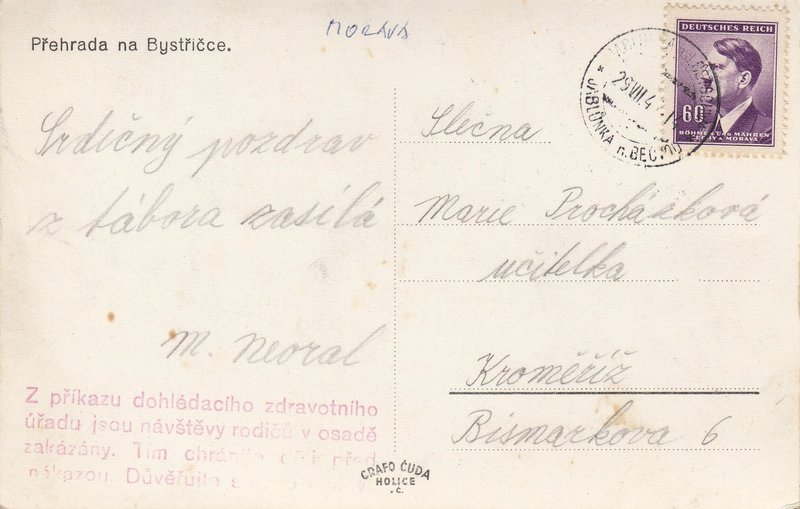 MORAVA
Přehrada na Bystřičce.
Srdičný pozdrav
z tábora zasílá
M. Neoral
Z příkazu dohlédacího zdravotního
úřadu jsou návštěvy rodičů v osadě
zakázány. Tím před
nákazou. Důvěřujte
GRAFO ČUDA
HOLICE
v Č.
DEUTSCHES REICH
60
BÖHMEN UND MÄHREN
ČECHY A MORAVA
29 VII 4
JABLŮNKA n. BEČ
Slečna
Marie Procházková
učitelka
Kroměříž
Bismarkova 6